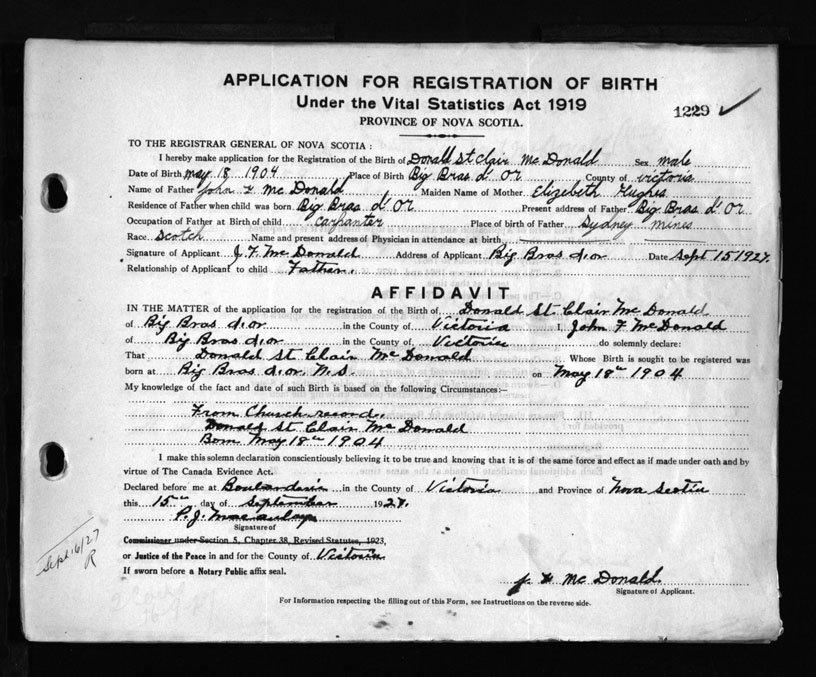 APPLICATION FOR REGISTRATION OF BIRTH
Under the Vital Statistics Act 1919
1229 ✓
PROVINCE OF NOVA SCOTIA.
TO THE REGISTRAR GENERAL OF NOVA SCOTIA :
I hereby make application for the Registration of the Birth of Donald St Clair Mc Donald Sex male
Date of Birth may 18 1904 Place of Birth Big Bras d' Or County of victoria
Name of Father John F Mc Donald Maiden Name of Mother Elizebeth Hughes
Residence of Father when child was born Big Bras d' Or Present address of Father Big Bras d' Or
Occupation of Father at Birth of child carpanter Place of birth of Father Sydney mines
Race Scotch Name and present address of Physician in attendance at birth
Signature of Applicant J. F. Mc Donald Address of Applicant Big Bras d.or Date Sept 15 1927.
Relationship of Applicant to child Father.
AFFIDAVIT
IN THE MATTER of the application for the registration of the Birth of Donald St Clair Mc Donald
of Big Bras d.or in the County of Victoria I, John F McDonald
of Big Bras d.or in the County of Victoria do solemnly declare:
That Donald St Clair Mc Donald Whose Birth is sought to be registered was
born at Big Bras d.or N.S. on May 18th 1904
My knowledge of the fact and date of such Birth is based on the following Circumstances:—
From Church record.
Donald St Clair Mc Donald
Born May 18th 1904
I make this solemn declaration conscientiously believing it to be true and knowing that it is of the same force and effect as if made under oath and by
virtue of The Canada Evidence Act.
Declared before me at Boulardarie in the County of Victoria and Province of Nova Scotia
this 15th day of September 1927.
P. J. Macaulay
Signature of
Commissioner under Section 5, Chapter 38, Revised Statutes, 1923,
or Justice of the Peace in and for the County of Victoria
If sworn before a Notary Public affix seal.
Sept 16/27
R
J. F. Mc Donald
Signature of Applicant.
For Information respecting the filling out of this Form, see Instructions on the reverse side.